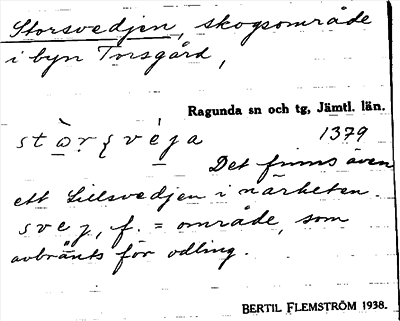 Storsvedjen, skogsområde
i byn Torsgård,
Ragunda sn och tg, Jämtl. län.
1379
Det finns även
ett Lillsvedjen i närheten.
svej, f. = område, som
avbränts för odling.
BERTIL FLEMSTRÖM 1938.